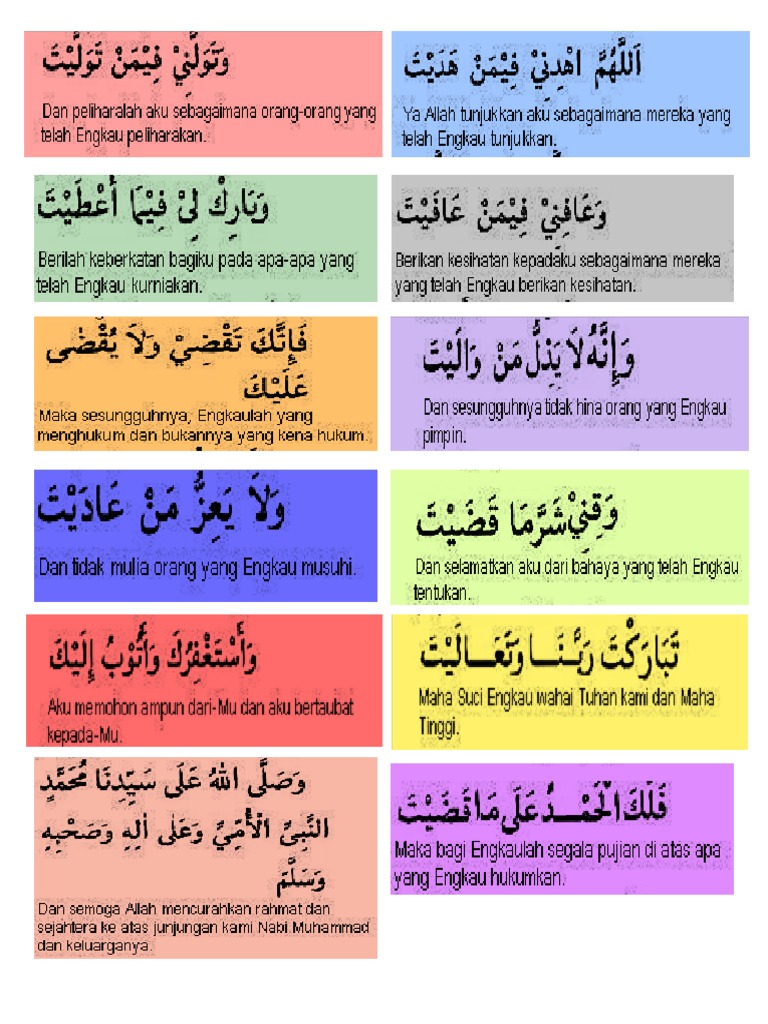 وَتَوَلَّنِيْ فِيْمَنْ تَوَلَّيْتَ
Dan peliharalah aku sebagaimana orang-orang yang
telah Engkau peliharakan.
اَللَّهُمَّ اهْدِنِيْ فِيْمَنْ هَدَيْتَ
Ya Allah tunjukkan aku sebagaimana mereka yang
telah Engkau tunjukkan.
وَبَارِكْ لِيْ فِيْمَا أَعْطَيْتَ
Berilah keberkatan bagiku pada apa-apa yang
telah Engkau kurniakan.
وَعَافِنِيْ فِيْمَنْ عَافَيْتَ
Berikan kesihatan kepadaku sebagaimana mereka
yang telah Engkau berikan kesihatan.
فَإِنَّكَ تَقْضِيْ وَلاَ يُقْضٰى
عَلَيْكَ
Maka sesungguhnya, Engkaulah yang
menghukum dan bukannya yang kena hukum.
وَإِنَّهُ لاَ يَذِلُّ مَنْ وَالَيْتَ
Dan sesungguhnya tidak hina orang yang Engkau
pimpin.
وَلاَ يَعِزُّ مَنْ عَادَيْتَ
Dan tidak mulia orang yang Engkau musuhi.
وَقِنِيْ شَرَّمَا قَضَيْتَ
Dan selamatkan aku dari bahaya yang telah Engkau
tentukan.
وَأَسْتَغْفِرُكَ وَأَتُوْبُ إِلَيْكَ
Aku memohon ampun dari-Mu dan aku bertaubat
kepada-Mu.
تَبَارَكْتَ رَبَّنَا وَتَعَالَيْتَ
Maha Suci Engkau wahai Tuhan kami dan Maha
Tinggi.
وَصَلَّى اللهُ عَلَى سَيِّدِنَا مُحَمَّدٍ
النَّبِيِّ الْأُمِّيِّ وَعَلٰى اٰلِهِ وَصَحْبِهِ
وَسَلَّمَ
Dan semoga Allah mencurahkan rahmat dan
sejahtera ke atas junjungan kami Nabi Muhammad
dan keluarganya.
فَلَكَ الْحَمْدُ عَلَى مَا قَضَيْتَ
Maka bagi Engkaulah segala pujian di atas apa
yang Engkau hukumkan.